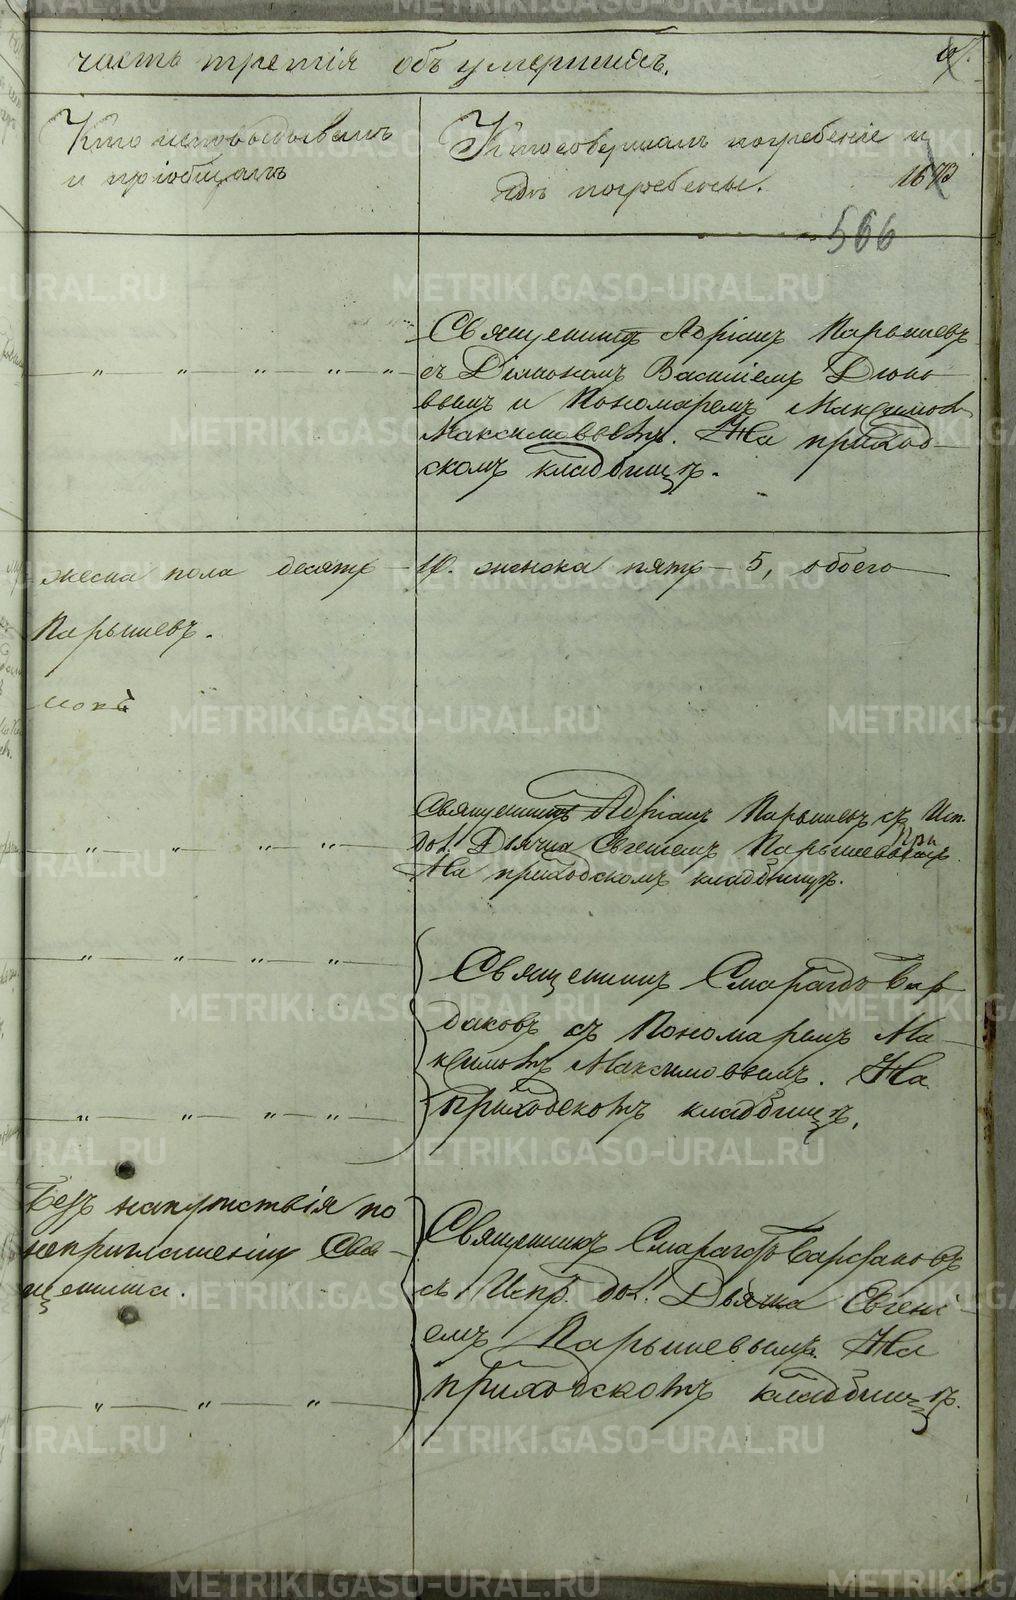 часть третія объ умершихъ.
Кто исповѣдывалъ
и пріобщалъ
Кто совершалъ погребеніе и
гдѣ погребены.
566
Священникъ Адріанъ Парышевъ
съ Діакономъ Василіемъ Дюко
вымъ и Пономаремъ Максимомъ
Максимовымъ. На приход-
скомъ кладбищѣ.
женска пола десять — 10. женска пять — 5, обоего
Парышевъ.
Священникъ Адріанъ Парышевъ съ Исп.
дол. Дьячка Евгеніемъ Парышевымъ
При
На приходскомъ кладбищѣ.
Священникъ Смарагдъ Бар
даковъ съ Пономаремъ Ма-
ксимомъ Максимовымъ. На
приходскомъ кладбищѣ.
Безъ напутствія по
неприглашенію Свя-
щенника.
Священникъ Смарагдъ Бардаковъ
съ Испр. дол. Дьячка Евгені-
емъ Парышевымъ. На
приходскомъ кладбищѣ.
METRIKI.GASO-URAL.RU